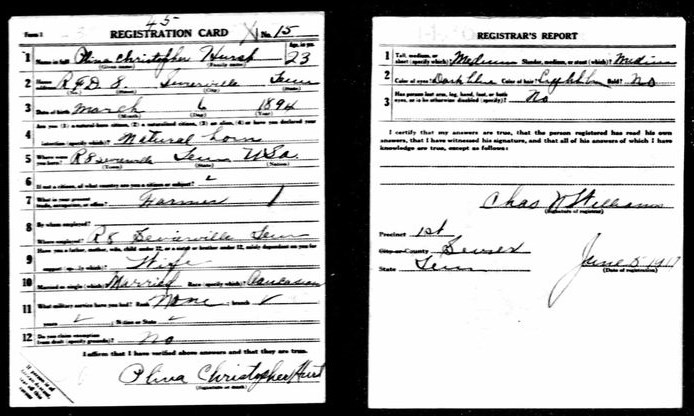 45
Form 1 REGISTRATION CARD No. 15
1 Name in full Plina Christopher Hurst Age, in yrs. 23
(Given name) (Family name)
2 Home address R.F.D 8. Sevierville Tenn
(No.) (Street) (City) (State)
3 Date of birth March 6 1894
(Month) (Day) (Year)
4 Are you (1) a natural-born citizen, (2) a naturalized citizen, (3) an alien, (4) or have you declared your
intention (specify which)? Natural born
5 Where were you born? R8 Sevierville Tenn USA.
(Town) (State) (Nation)
6 If not a citizen, of what country are you a citizen or subject?
7 What is your present trade, occupation, or office? Farmer
8 By whom employed?
Where employed? R8 Sevierville Tenn
9 Have you a father, mother, wife, child under 12, or a sister or brother under 12, solely dependent on you for
support (specify which)? Wife
10 Married or single (which)? Married Race (specify which)? Caucasian
11 What military service have you had? Rank None ; branch
years ; Nation or State
12 Do you claim exemption from draft (specify grounds)? No
I affirm that I have verified above answers and that they are true.
Plina Christopher Hurst
(Signature or mark)
REGISTRAR'S REPORT
1 Tall, medium, or short (specify which)? Medium Slender, medium, or stout (which)? Medium
2 Color of eyes? Dark blue Color of hair? Light bln Bald? No
3 Has person lost arm, leg, hand, foot, or both
eyes, or is he otherwise disabled (specify)? No
I certify that my answers are true, that the person registered has read his own
answers, that I have witnessed his signature, and that all of his answers of which I have
knowledge are true, except as follows:
Chas W Williams
(Signature of registrar)
Precinct 1st
City or County Sevier
State Tenn
June 5 1917
(Date of registration)